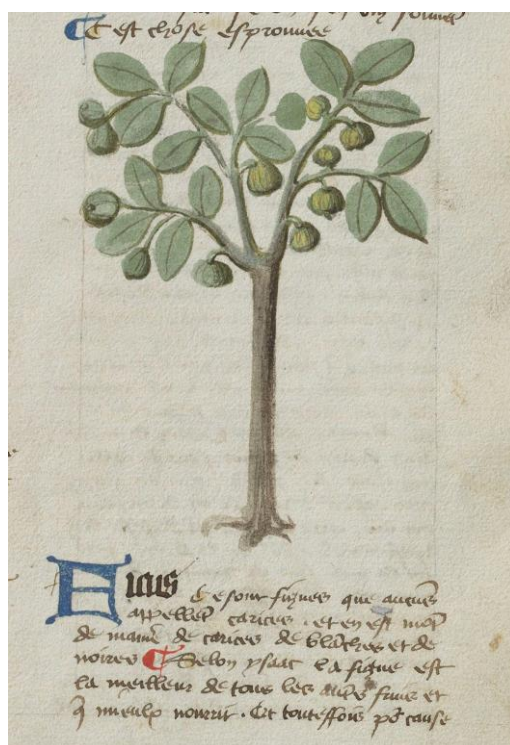 C'est chose esprouuee
Ficus Ce sont figues que aucuns
appellet carices . et en est moʔ
de maniē de carices de blāches et de
noires Selon ysaac la figue est
la meilleur de tous les autˢ fruis et
q̄ mieulx nourrit . Et touteffois p̄ cause